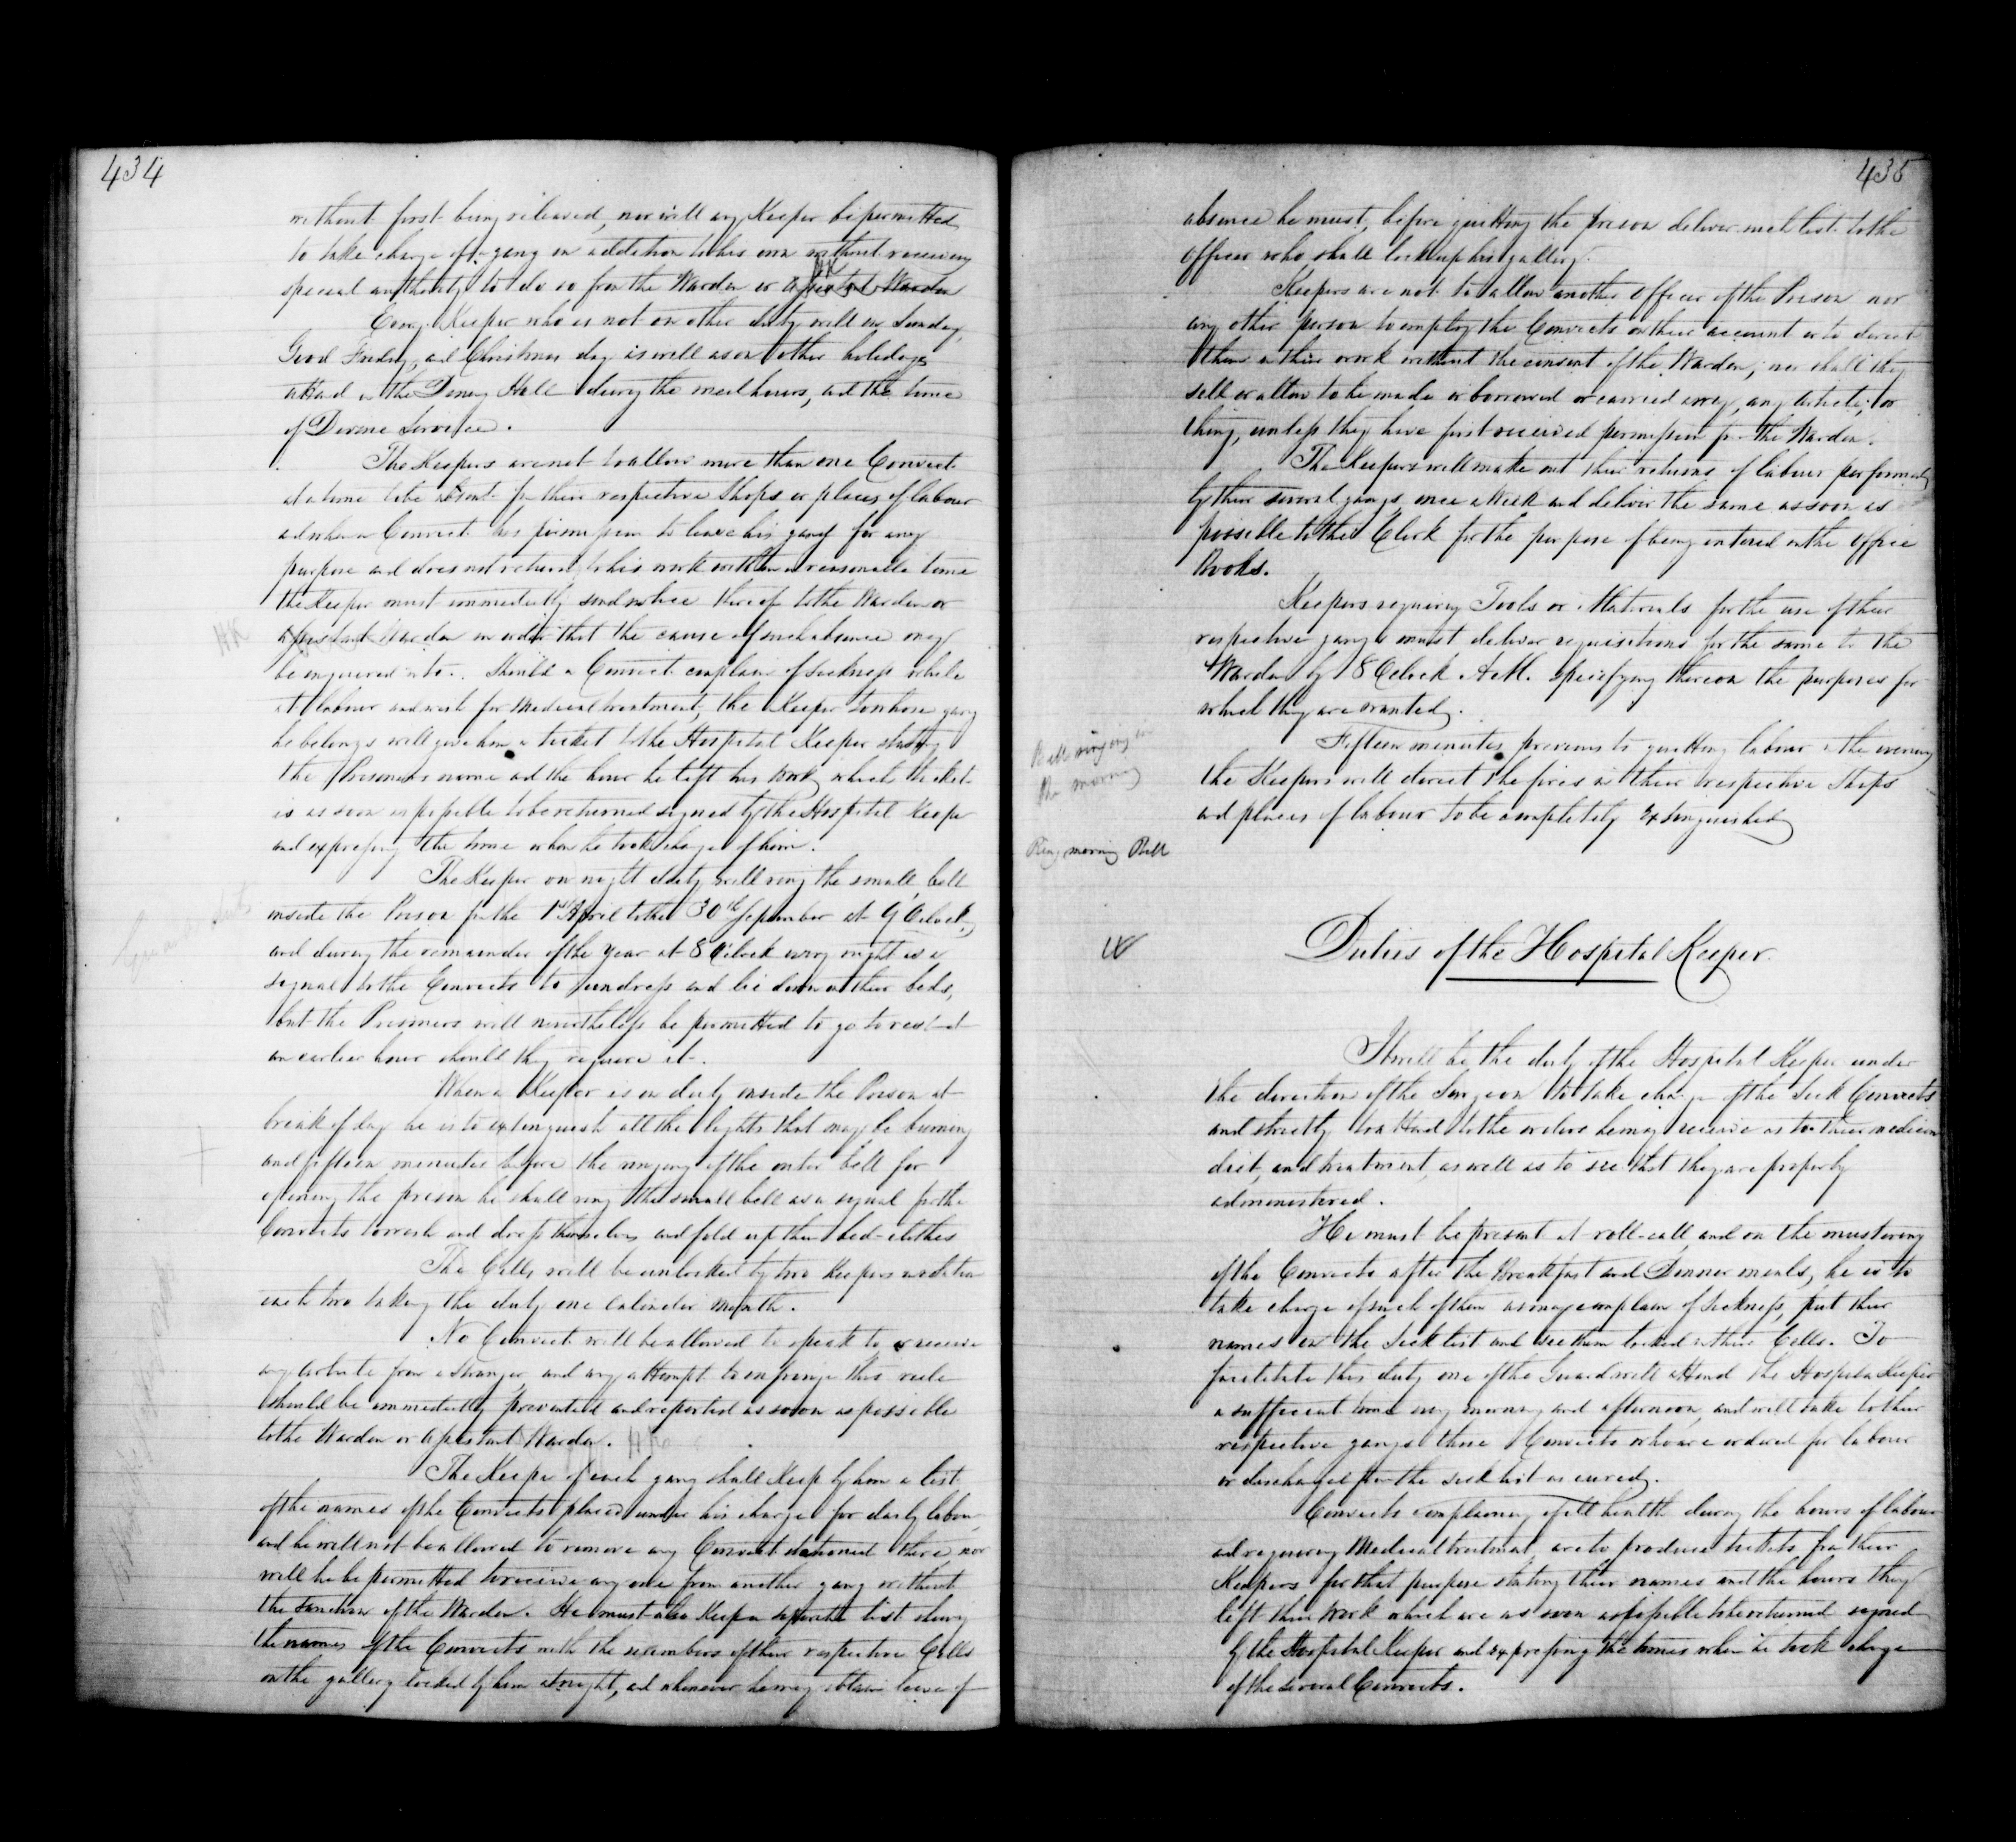 434
without first being relieved, nor will any Keeper be permitted
to take charge of a gang in addition to his own without receiving
special authority to do so from the Warden or Assistant Warden
HK
Every Keeper who is not on other duty will on Sunday,
Good Friday, and Christmas day as well as on other holidays
attend in the Dining Hall during the meal hours, and the time
of Divine Service.
The Keepers are not to allow more than one Convict
at a time to be absent from their respective Shops or places of labour
and when a Convict has permission to leave his gang for any
purpose and does not return to his work within a reasonable time
the Keeper must immediately send notice thereof to the Warden or
HK
Assistant Warden in order that the cause of such absence may
be enquired into. Should a Convict complain of sickness while
at labour and wish for Medical treatment, the Keeper to whose gang
he belongs will give him a ticket to the Hospital Keeper stating
the Prisoners name and the hour he left his work, which ticket
is as soon as possible to be returned signed by the Hospital Keeper
and expressing the time when he took charge of him.
The Keeper on night duty will ring the small bell
inside the Prison from the 1st April to the 30th September at 9 OClock,
and during the remainder of the year at 8 OClock every night as a
signal to the Convicts to undress and lie down in their beds,
but the Prisoners will nevertheless be permitted to go to rest at
an earlier hour should they require it.
When a Keeper is on duty inside the Prison at
break of day he is to extinguish all the lights that may be burning
and fifteen minutes before the ringing of the outer bell for
opening the prison he shall ring the small bell as a signal for the
Convicts to wash and dress themselves and fold up their bed-clothes
The Cells will be unlocked by two Keepers in rotation
each two taking the duty one calender month.
No Convict will be allowed to speak to or receive
any article from a stranger, and any attempt to infringe this rule
should be immediately prevented and reported as soon as possible
to the Warden or Assistant Warden. HK
The Keeper of each gang shall keep by him a list
of the names of the Convicts placed under his charge for daily labour,
and he will not be allowed to remove any Convict stationed there, nor
will he be permitted to receive any one from another gang without
the sanction of the Warden. He must also keep a separate list showing
the names of the Convicts with the numbers of their respective Cells
on the gallery locked by him at night, and whenever he may obtain leave of
435
absence he must, before quitting the prison deliver such list to the
Officer who shall lock up his gallery.
Keepers are not to allow another Officer of the Prison nor
any other person to employ the Convicts on their account or to direct
them in their work without the consent of the Warden; nor shall they
sell or allow to be made or borrowed or carried away, any article, or
thing, unless they have first received permission from the Warden.
The Keepers will make out their returns of labour performed
by their several gangs, once a week and deliver the same as soon as
possible to the Clerk for the purpose of being entered in the Office
Books.
Keepers requiring Tools or Materials for the use of their
respective gangs must deliver requisitions for the same to the
Warden by 8 OClock A.M. specifying thereon the purposes for
which they are wanted.
Bell ringing in
the morning
Fifteen minutes previous to quitting labour in the evening
the Keepers will direct the fires in their respective Shops
and places of labour to be completely extinguished
Ring morning Bell
Duties of the Hospital Keeper.
It will be the duty of the Hospital Keeper under
the direction of the Surgeon to take charge of the Sick Convicts
and strictly to attend to the orders he may receive as to their medicine
diet, and treatment, as well as to see that they are properly
administered.
He must be present at roll-call, and on the mustering
of the Convicts after the Breakfast and Dinner meals, he is to
take charge of such of them as may complain of sickness, put their
names on the Sick list and see them locked in their Cells. To
facilitate this duty one of the Guard will attend the Hospital Keeper
a sufficient time every morning and afternoon, and will take to their
respective gangs those Convicts who are ordered for labour
or discharged from the sick list as cured.
Convicts complaining of ill health during the hours of labour
and requiring Medical treatment, are to produce tickets from their
Keepers for that purpose stating their names and the hours they
left their work which are as soon as possible to be returned signed
by the Hospital Keeper and expressing the times when he took charge
of the several Convicts.